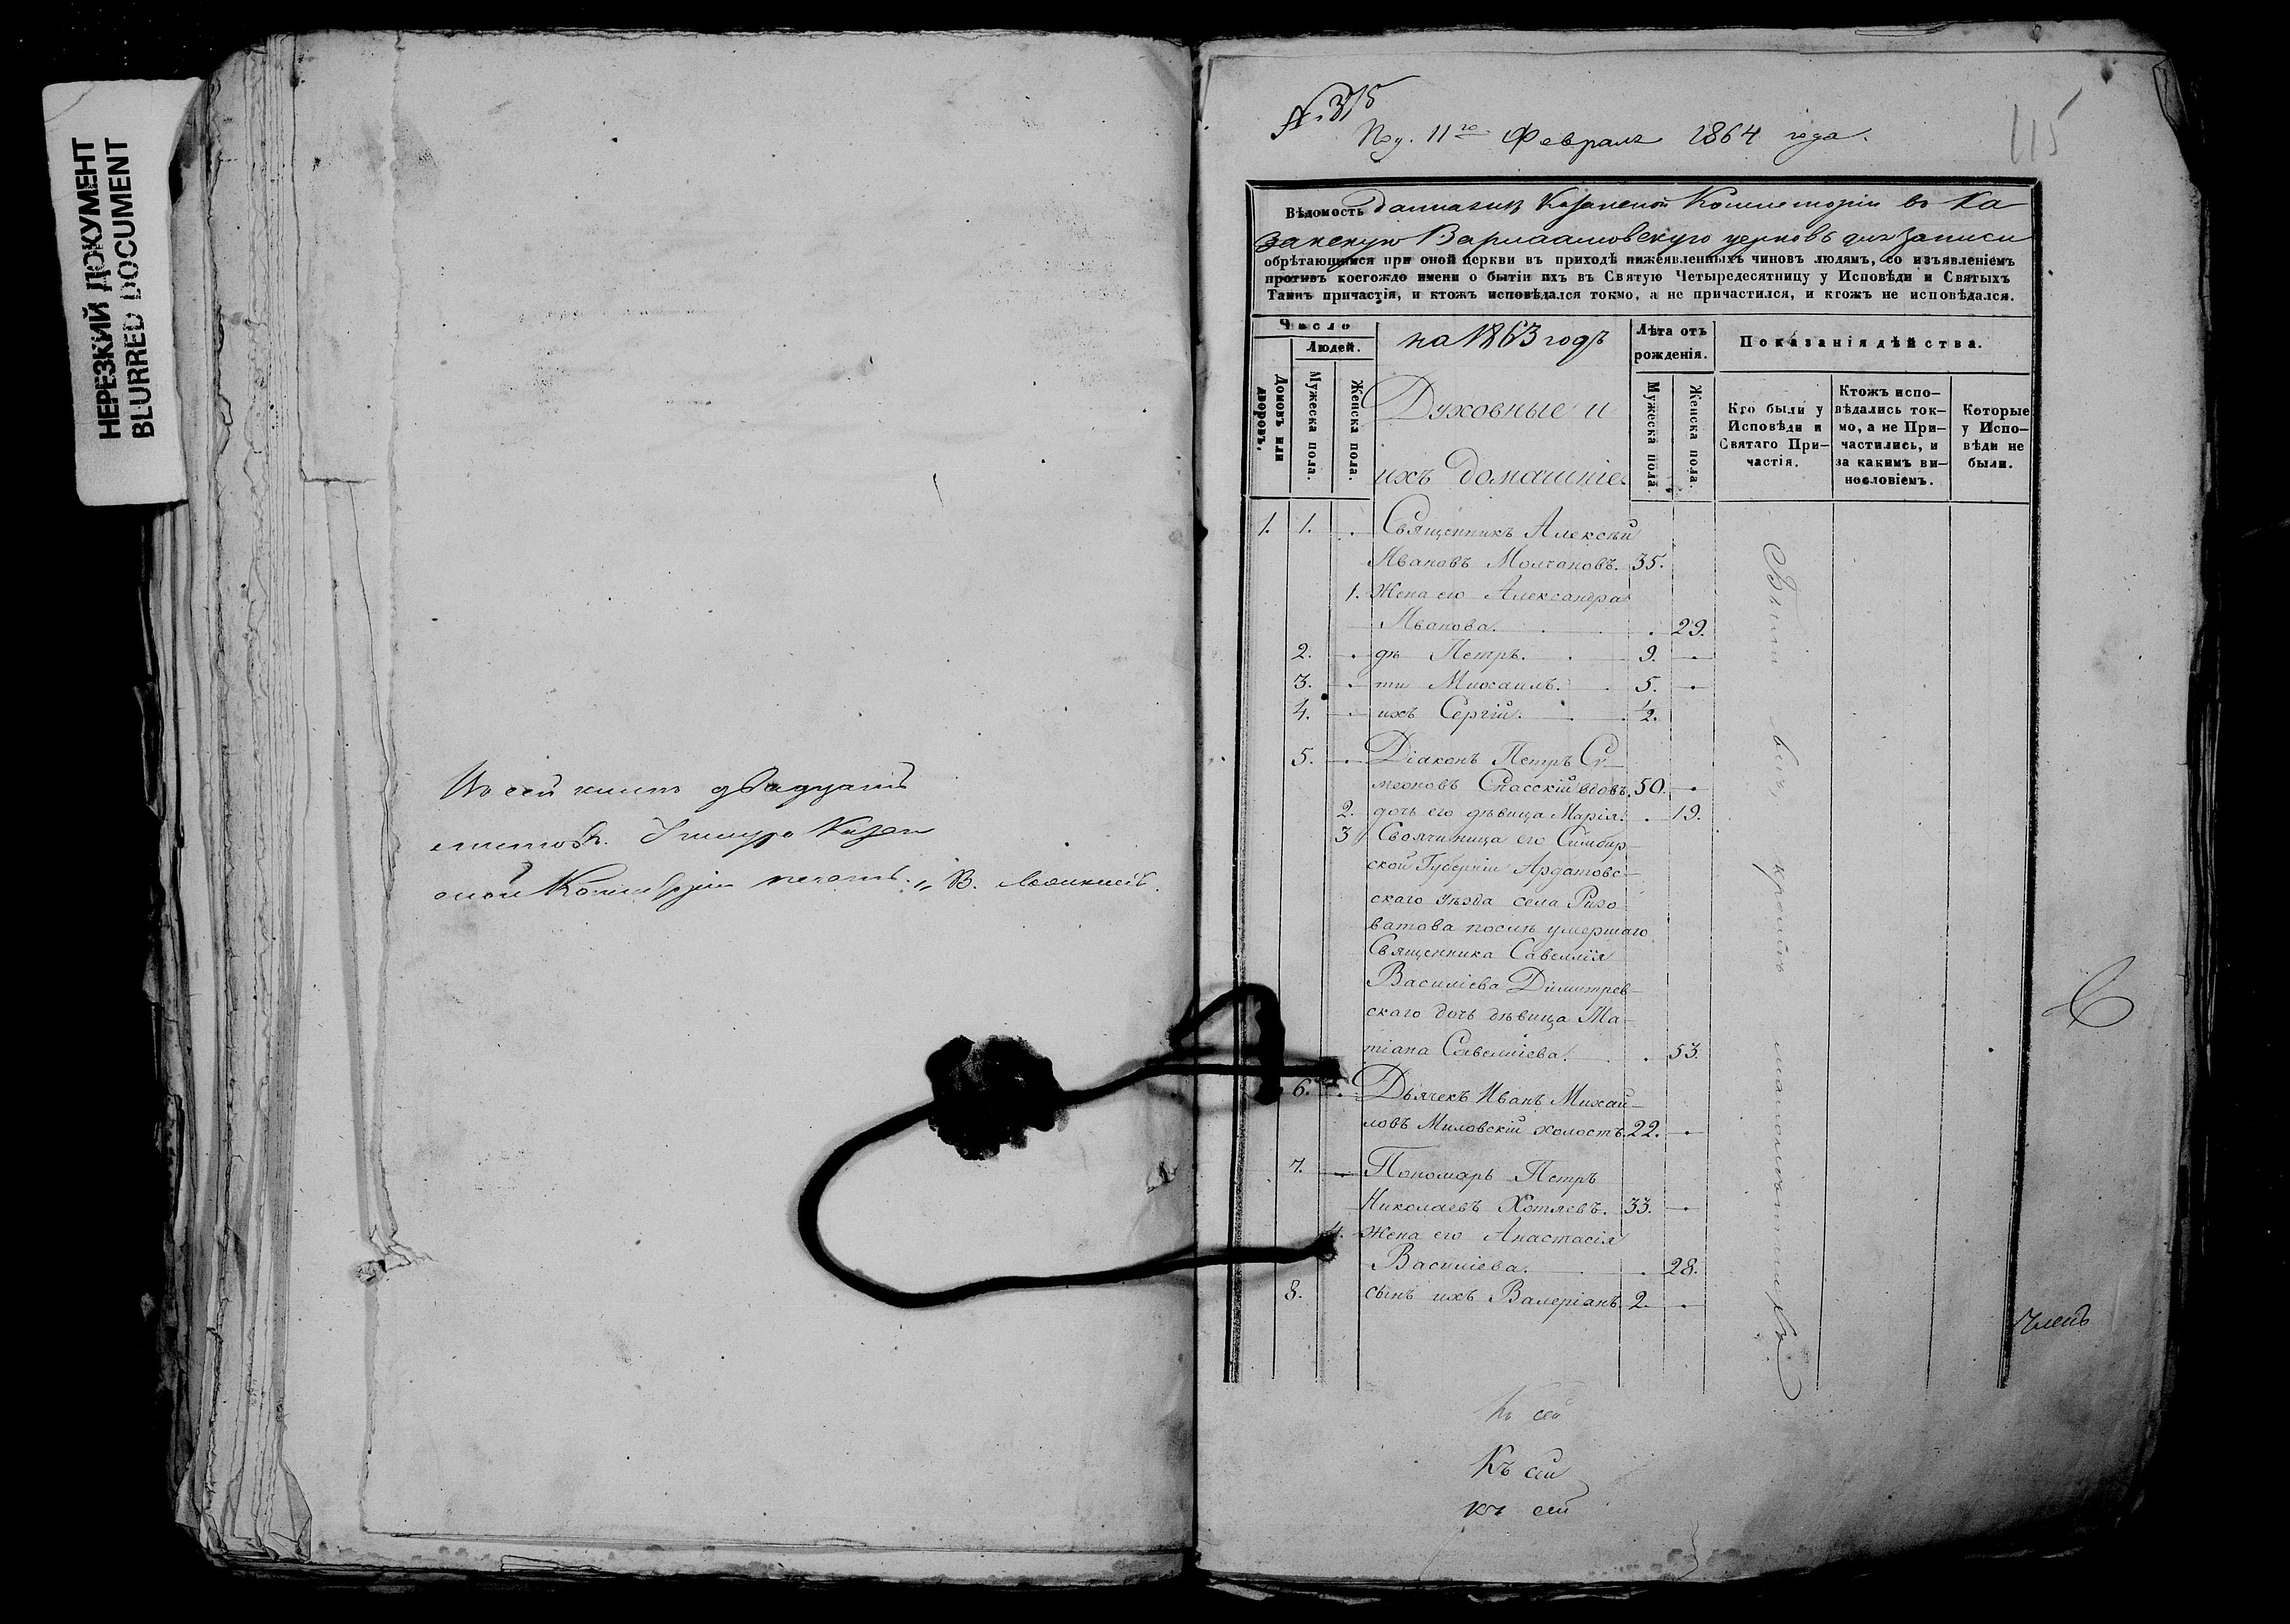 НЕРЕЗКИЙ ДОКУМЕНТ
BLURRED DOCUMENT
Въ сей книгѣ двадцать
листовъ.
№ 375
Пол. 11го Февраля 1864 года.
115
Вѣдомость данная изъ Казанской Консисторіи въ Ка
занскую Варлаамовскую церковь для записи
обрѣтающимся при оной церкви въ приходѣ нижеявленныхъ чиновъ людямъ, со изъявленіемъ
противъ коегождо имени о бытіи ихъ въ Святую Четыредесятницу у Исповѣди и Святыхъ
Таинъ причастія, и ктожъ исповѣдался токмо, а не причастился, и ктожъ не исповѣдался.
Число
Людей.
Домовъ или дворовъ.
Мужеска пола.
Женска пола.
на 1863 годъ
Духовные и
ихъ домашніе.
Лѣта отъ
рожденія.
Мужеска пола.
Женска пола.
Показанія дѣйства.
Кто были у
Исповѣди и
Святаго При-
частія.
Ктожъ испо-
вѣдались ток-
мо, а не При-
частились, и
за какимъ ви-
нословіемъ.
Которые
у Испо-
вѣди не
были.
1. 1. Священникъ Алексѣй
Ивановъ Молчановъ. 35.
1. Жена его Александра
Иванова. 29.
2. дѣ Петръ. 9.
3. ти Михаилъ. 5.
4. ихъ Сергій. ½.
5. Діаконъ Петръ Си-
меоновъ Спасскій вдовъ. 50.
2. дочь его дѣвица Марія. 19.
3 Своячиница его Симбир-
ской Губерніи Ардатов-
скаго уѣзда села Ризо
ватова послѣ умершаго
Священника Савеллія
Василіева Димитрев-
скаго дочь дѣвица Та-
тіана Савелліева. 53.
6. Дьячекъ Иванъ Михай-
ловъ Миловскій холостъ. 22.
7. Пономарь Петръ
Николаевъ Хотяевъ. 33.
4. Жена его Анастасія
Василіева. 28.
8. сынъ ихъ Валеріанъ. 2.
Были всѣ, кромѣ малолѣтнихъ.
Членъ
Къ сей
Къ сей
Къ сей